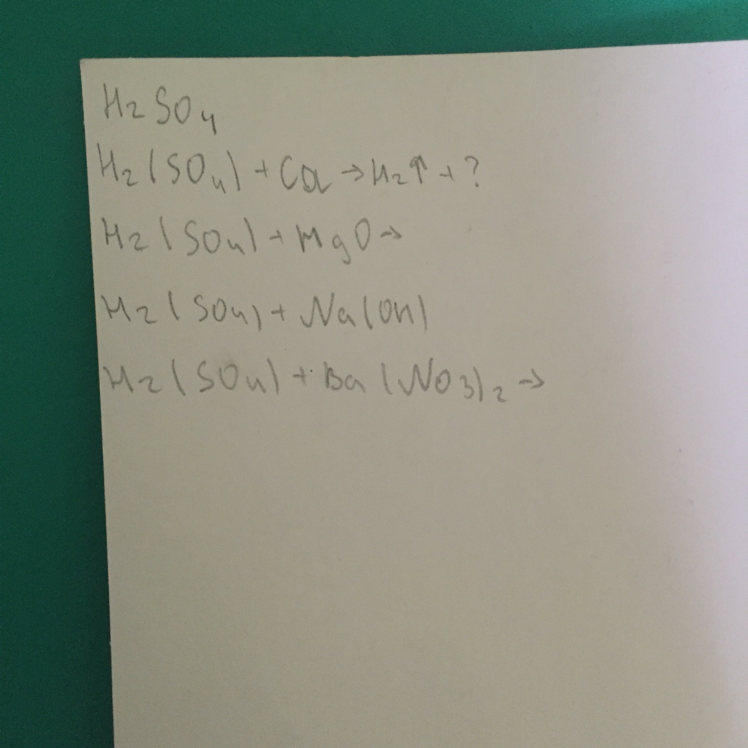 H₂SO₄
H₂(SO₄) + Ca → H₂↑ + ?
H₂(SO₄) + MgO →
H₂(SO₄) + Na(OH)
H₂(SO₄) + Ba(NO₃)₂ →